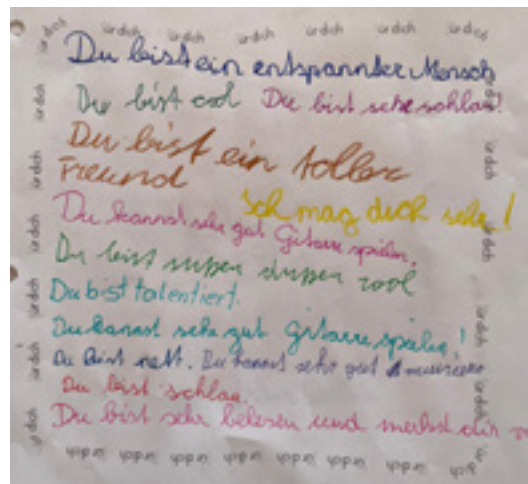 ür dich ür dich ür dich ür dich ür dich ür dich
Du bist ein entspannter Mensch
Du bist col Du bist sehr schlau!
Du bist ein toller
Freund Ich mag dich sehr!
Du kannst sehr gut Gitarre spielen.
Du bist super duper cool
Du bist talentiert.
Du kannst sehr gut gitarre spielen!
Du bist nett. Du kannst sehr gut musizieren
Du bist schlau.
Du bist sehr belesen und merkst dir